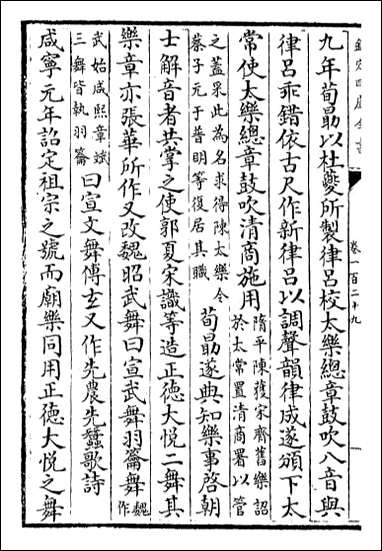 欽定四庫全書
卷一百二十九
九年荀勗以杜夔所製律呂校太樂總章鼓吹八音與
律呂乖錯依古尺作新律呂以調聲韻律成遂頒下太
常使太樂總章鼓吹清商施用
隋平陳獲宋齊舊樂詔
於太常置清商署以管
之蓋采此為名求得陳太樂令
蔡子元于普明等復居其職
荀勗遂典知樂事啓朝
士解音者共掌之使郭夏宋識等造正德大悦二舞其
樂章亦張華所作又改魏昭武舞曰宣武舞羽籥舞
魏
作
武始咸熙章斌
三舞皆執羽籥
曰宣文舞傅玄又作先農先蠶歌詩
咸寧元年詔定祖宗之號而廟樂同用正德大悦之舞